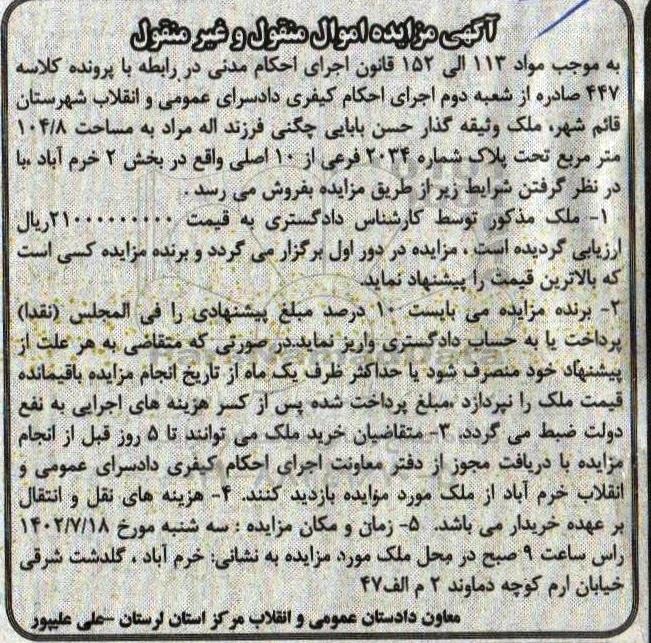 آگهی مزایده اموال منقول و غیر منقول
به موجب مواد ۱۱۳ الی ۱۵۲ قانون اجرای احکام مدنی در رابطه با پرونده کلاسه
۴۴۷ صادره از شعبه دوم اجرای احکام کیفری دادسرای عمومی و انقلاب شهرستان
قائم شهر، ملک وثیقه گذار حسن بابایی چگنی فرزند اله مراد به مساحت ۱۰۴/۸
متر مربع تحت پلاک شماره ۲۰۳۴ فرعی از ۱۰ اصلی واقع در بخش ۲ خرم آباد ،با
در نظر گرفتن شرایط زیر از طریق مزایده بفروش می رسد .
۱- ملک مذکور توسط کارشناس دادگستری به قیمت ۲۱۰۰۰۰۰۰۰۰۰ریال
ارزیابی گردیده است ، مزایده در دور اول برگزار می گردد و برنده مزایده کسی است
که بالاترین قیمت را پیشنهاد نماید.
۲- برنده مزایده می بایست ۱۰ درصد مبلغ پیشنهادی را فی المجلس (نقدا)
پرداخت یا به حساب دادگستری واریز نماید.در صورتی که متقاضی به هر علت از
پیشنهاد خود منصرف شود یا حداکثر ظرف یک ماه از تاریخ انجام مزایده باقیمانده
قیمت ملک را نپردازد ،مبلغ پرداخت شده پس از کسر هزینه های اجرایی به نفع
دولت ضبط می گردد. ۳- متقاضیان خرید ملک می توانند تا ۵ روز قبل از انجام
مزایده با دریافت مجوز از دفتر معاونت اجرای احکام کیفری دادسرای عمومی و
انقلاب خرم آباد از ملک مورد مزایده بازدید کنند. ۴- هزینه های نقل و انتقال
بر عهده خریدار می باشد. ۵- زمان و مکان مزایده : سه شنبه مورخ ۱۴۰۲/۷/۱۸
راس ساعت ۹ صبح در محل ملک مورد مزایده به نشانی: خرم آباد ، گلدشت شرقی
خیابان ارم کوچه دماوند ۲ م الف۴۷
معاون دادستان عمومی و انقلاب مرکز استان لرستان -علی علیپور